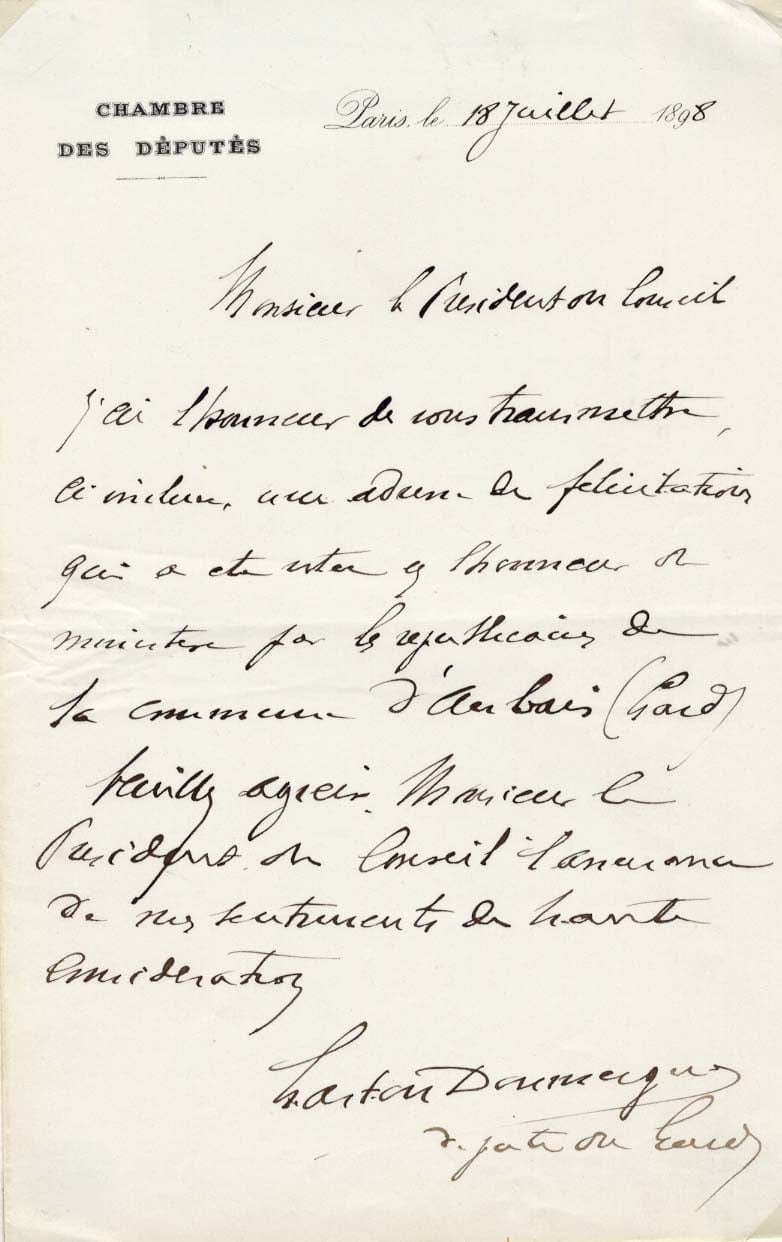 CHAMBRE
DES DÉPUTÉS
Paris, le 18 Juillet 1898
Monsieur le Président du Conseil
J'ai l'honneur de vous transmettre,
ci incluse, une adresse de félicitations
qui a été votée en l'honneur du
ministère par les républicains de
la commune d'Aubais (Gard)
Veuillez agréer, Monsieur le
Président du Conseil l'assurance
de mes sentiments de haute
considération
Gaston Doumergue
député du Gard